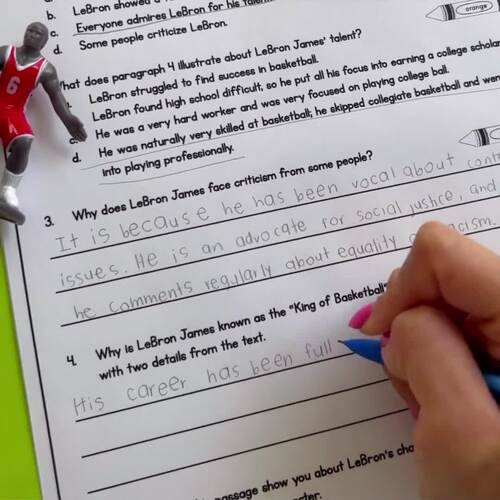 b. LeBron showed a
c. Everyone admires LeBron for his talent.
d. Some people criticize LeBron.
orange
What does paragraph 4 illustrate about LeBron James' talent?
LeBron struggled to find success in basketball.
LeBron found high school difficult, so he put all his focus into earning a college
c. He was a very hard worker and was very focused on playing college ball.
d. He was naturally very skilled at basketball; he skipped collegiate basketball and went
into playing professionally.
6
3. Why does LeBron James face criticism from some people?
It is because he has been vocal about
issues. He is an advocate for social justice, and
he comments regularly about equality
4. Why is LeBron James known as the "King of Basketball"
with two details from the text.
His career has been full
passage show you about LeBron's